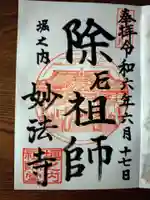 奉拝令和六年六月十七日
除厄祖師
堀之内
妙法寺